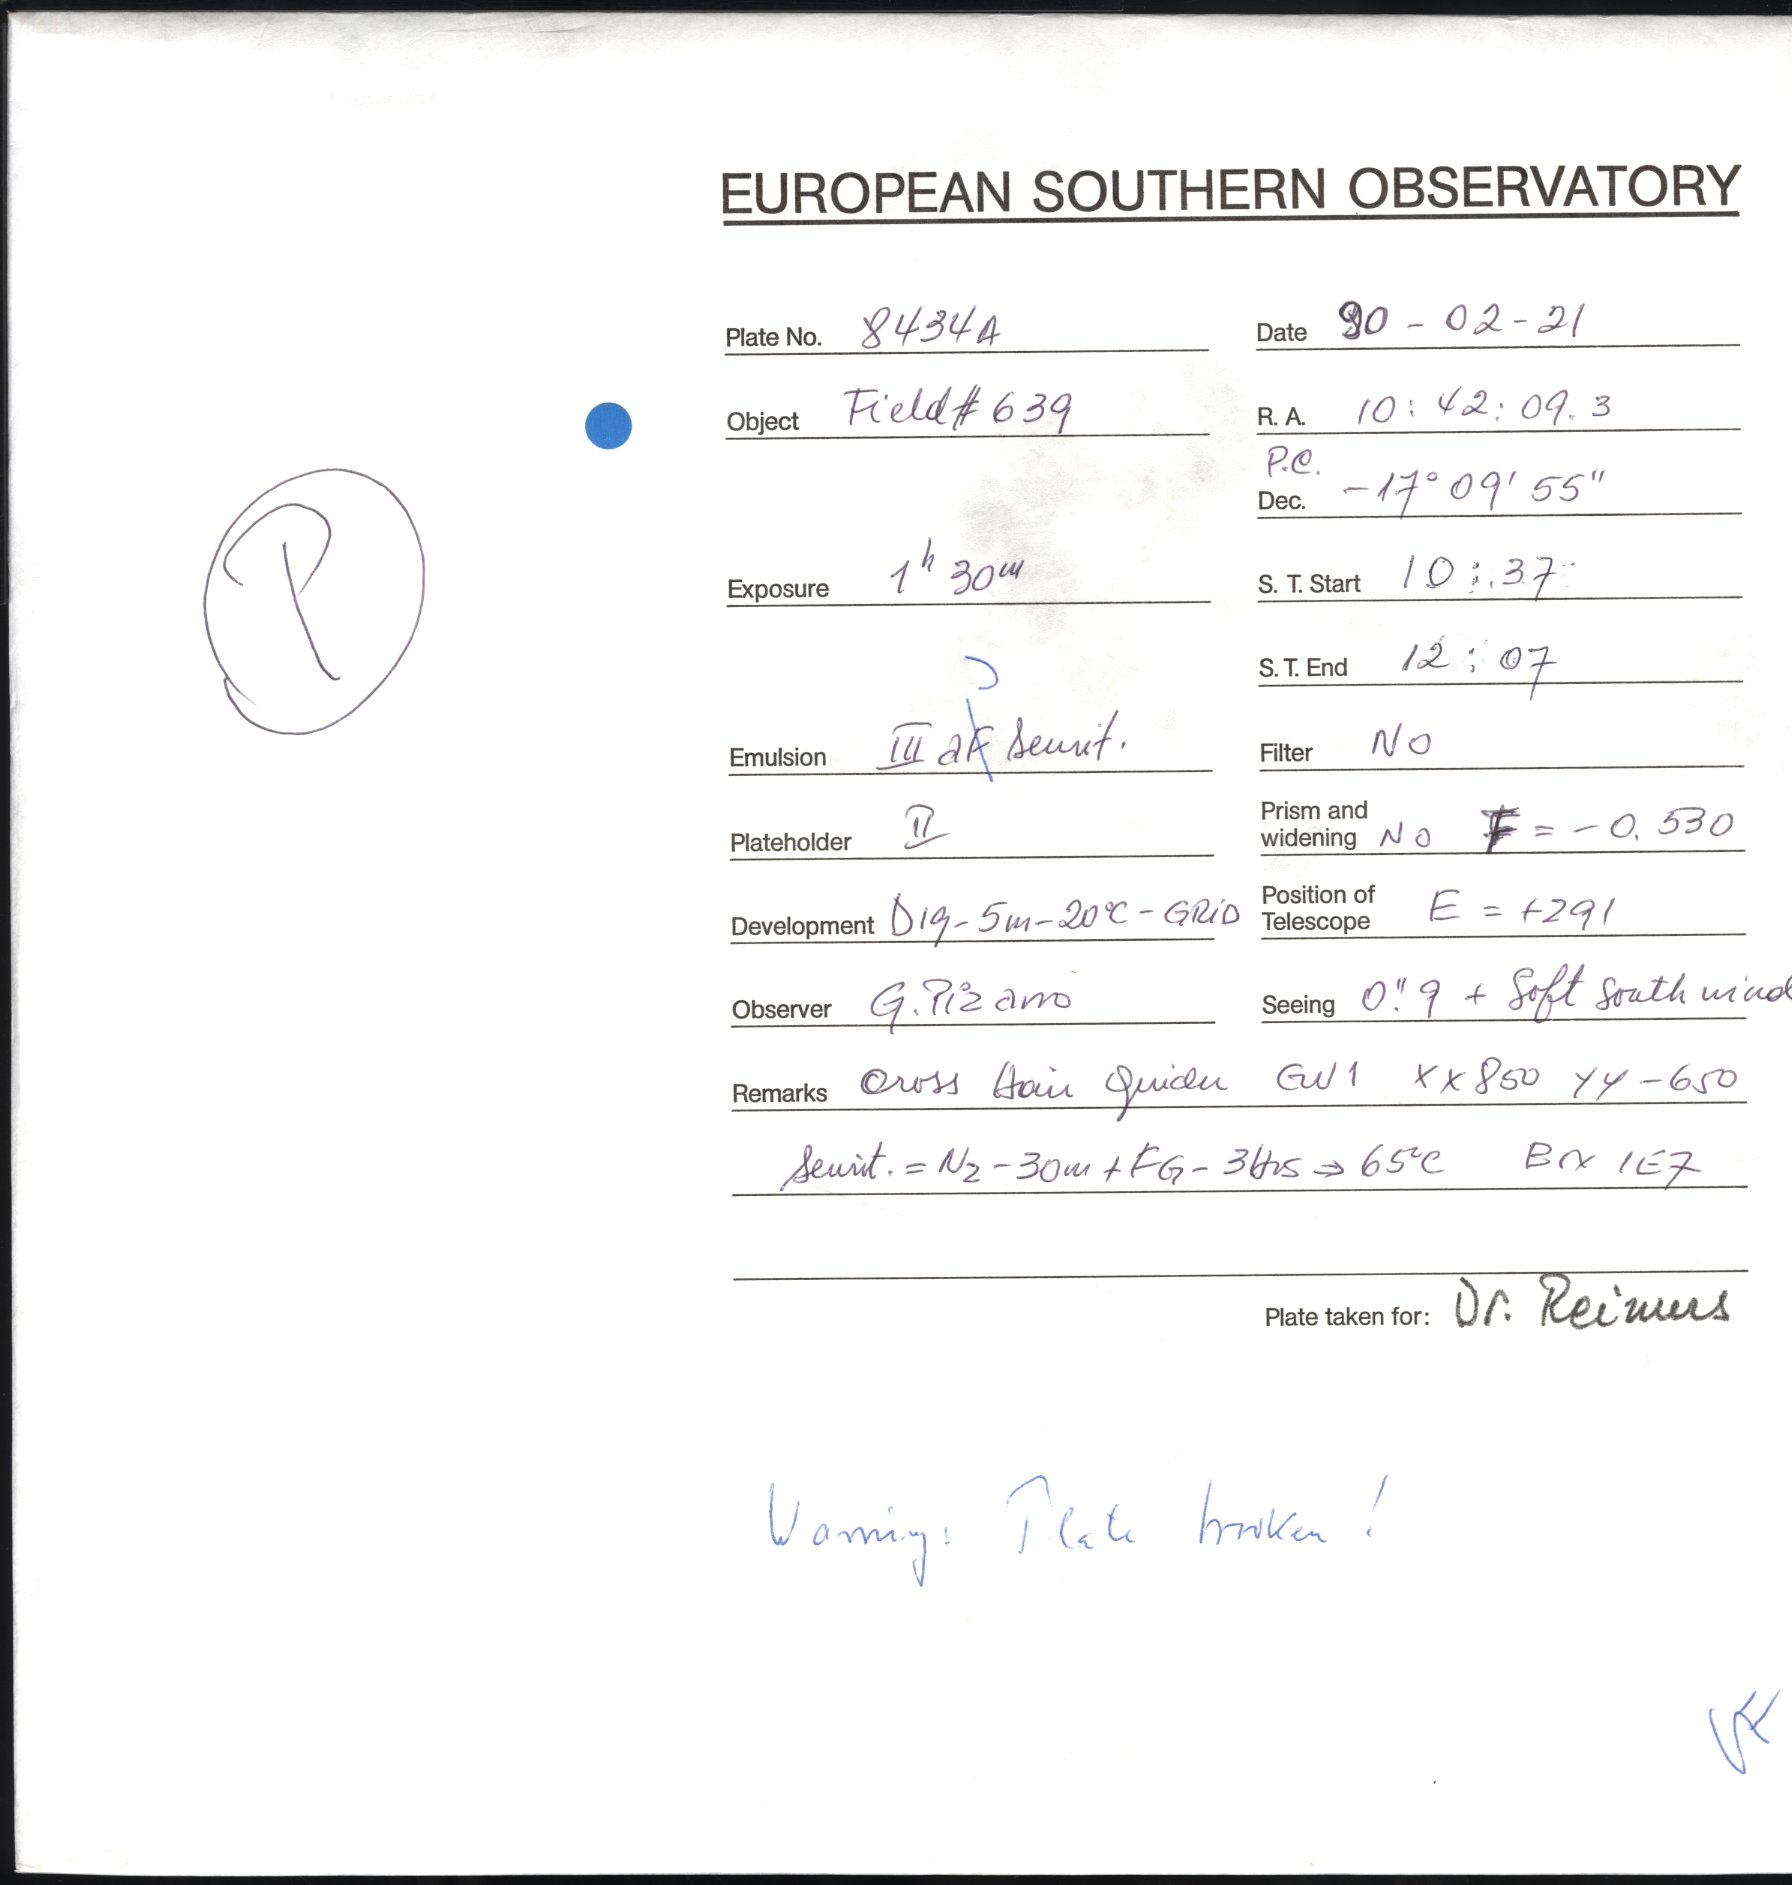 EUROPEAN SOUTHERN OBSERVATORY
Plate No. 8434A Date 90 - 02 - 21
Object Field # 639 R. A. 10 : 42 : 09. 3
P.C.
Dec. -17° 09' 55"
P
Exposure 1h 30m S. T. Start 10 : 37
S. T. End 12 : 07
J
Emulsion III aF Sensit. Filter NO
Plateholder II Prism and widening NO F = - 0. 530
Development D19 - 5m - 20°C - GRiD Position of Telescope E = +291
Observer G. Pizarro Seeing 0".9 + Soft South wind
Remarks Cross Hair Guider GW1 XX 850 YY - 650
Sensit. = N2 - 30m + FG - 3Hrs => 65°C Box 1E7
Plate taken for: Dr. Reimers
Warning: Plate broken!